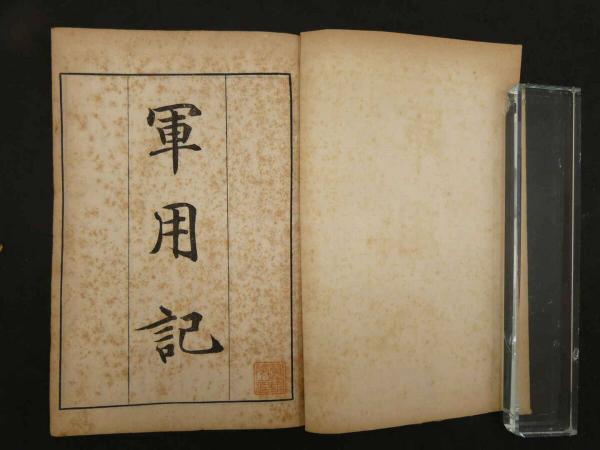 軍用記